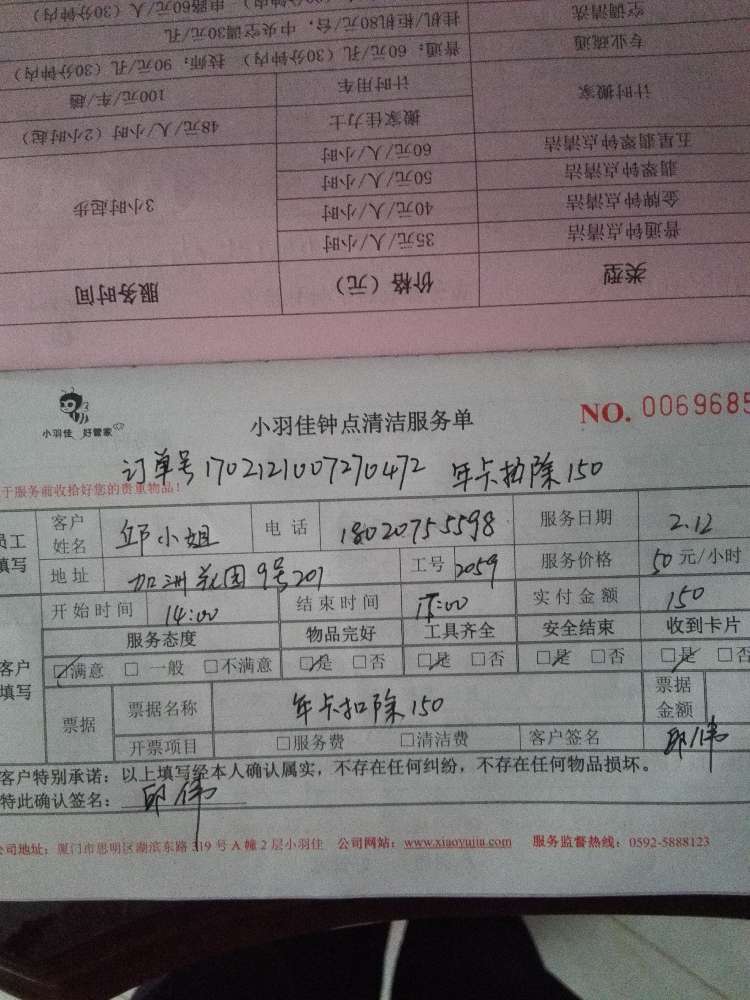 挂机/柜机80元/台,中央空调30元/孔
空调清洗
专业疏通 普通:60元/孔(30分钟内) 技师:90元/孔(30分钟内)
计时搬家 计时用车 100元/车/趟
搬家佳力士 48元/人/小时(2小时起)
五星翡翠钟点清洁 60元/人/小时 3小时起步
翡翠钟点清洁 50元/人/小时
金牌钟点清洁 40元/人/小时
普通钟点清洁 35元/人/小时
类型 价格(元) 服务时间
小羽佳 好管家
小羽佳钟点清洁服务单
NO. 0069685
订单号1702121007270472 年卡扣除150
于服务前收拾好您的贵重物品!
员工填写 客户姓名 邱小姐 电话 18020755598 服务日期 2.12
地址 加洲花园9号201 工号 2059 服务价格 50元/小时
开始时间 14:00 结束时间 17:00 实付金额 150
客户填写 服务态度 物品完好 工具齐全 安全结束 收到卡片
☑满意 □一般 □不满意 ☑是 □否 ☑是 □否 ☑是 □否 ☑是 □否
票据 票据名称 年卡扣除150 票据金额
开票项目 □服务费 □清洁费 客户签名 邱伟
客户特别承诺:以上填写经本人确认属实,不存在任何纠纷,不存在任何物品损坏。
特此确认签名: 邱伟
公司地址:厦门市思明区湖滨东路319号A幢2层小羽佳 公司网站:www.xiaoyujia.com 服务监督热线:0592-5888123